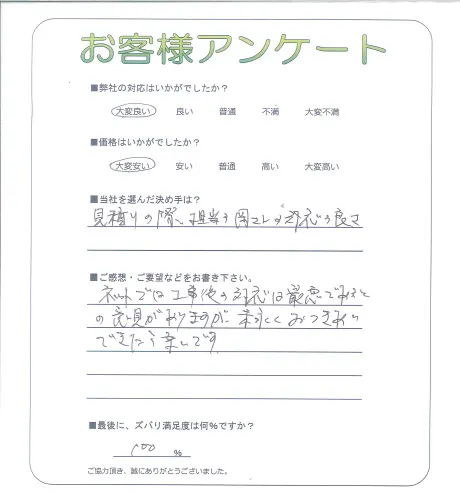 お客様アンケート
■弊社の対応はいかがでしたか？
大変良い 良い 普通 不満 大変不満
■価格はいかがでしたか？
大変安い 安い 普通 高い 大変高い
■当社を選んだ決め手は？
見積りの際、担当の岡サンの対応の良さ
■ご感想・ご要望などをお書き下さい。
ネットでは工事後の対応は最悪であると
の意見がありますが、末永くおつきあい
できたら幸いです
■最後に、ズバリ満足度は何%ですか？
100 %
ご協力頂き、誠にありがとうございました。